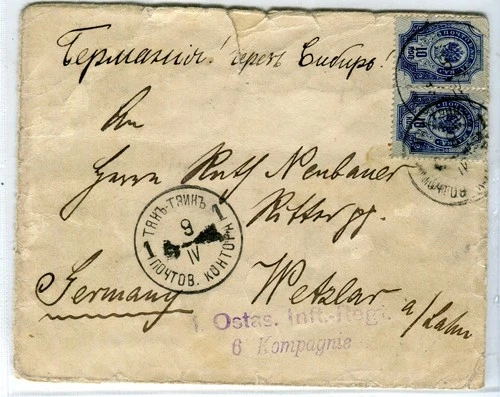 Германія! через Сибирь!
An
Herrn Ruth Neubauer
Rittergg.
Germany Wetzlar a/Lahn
ТЯНЬ-ТЗИНЬ
1 9 IV 1
ПОЧТОВ. КОНТОРА
1. Ostas. Inft.-Regt.
6 Kompagnie
10
10